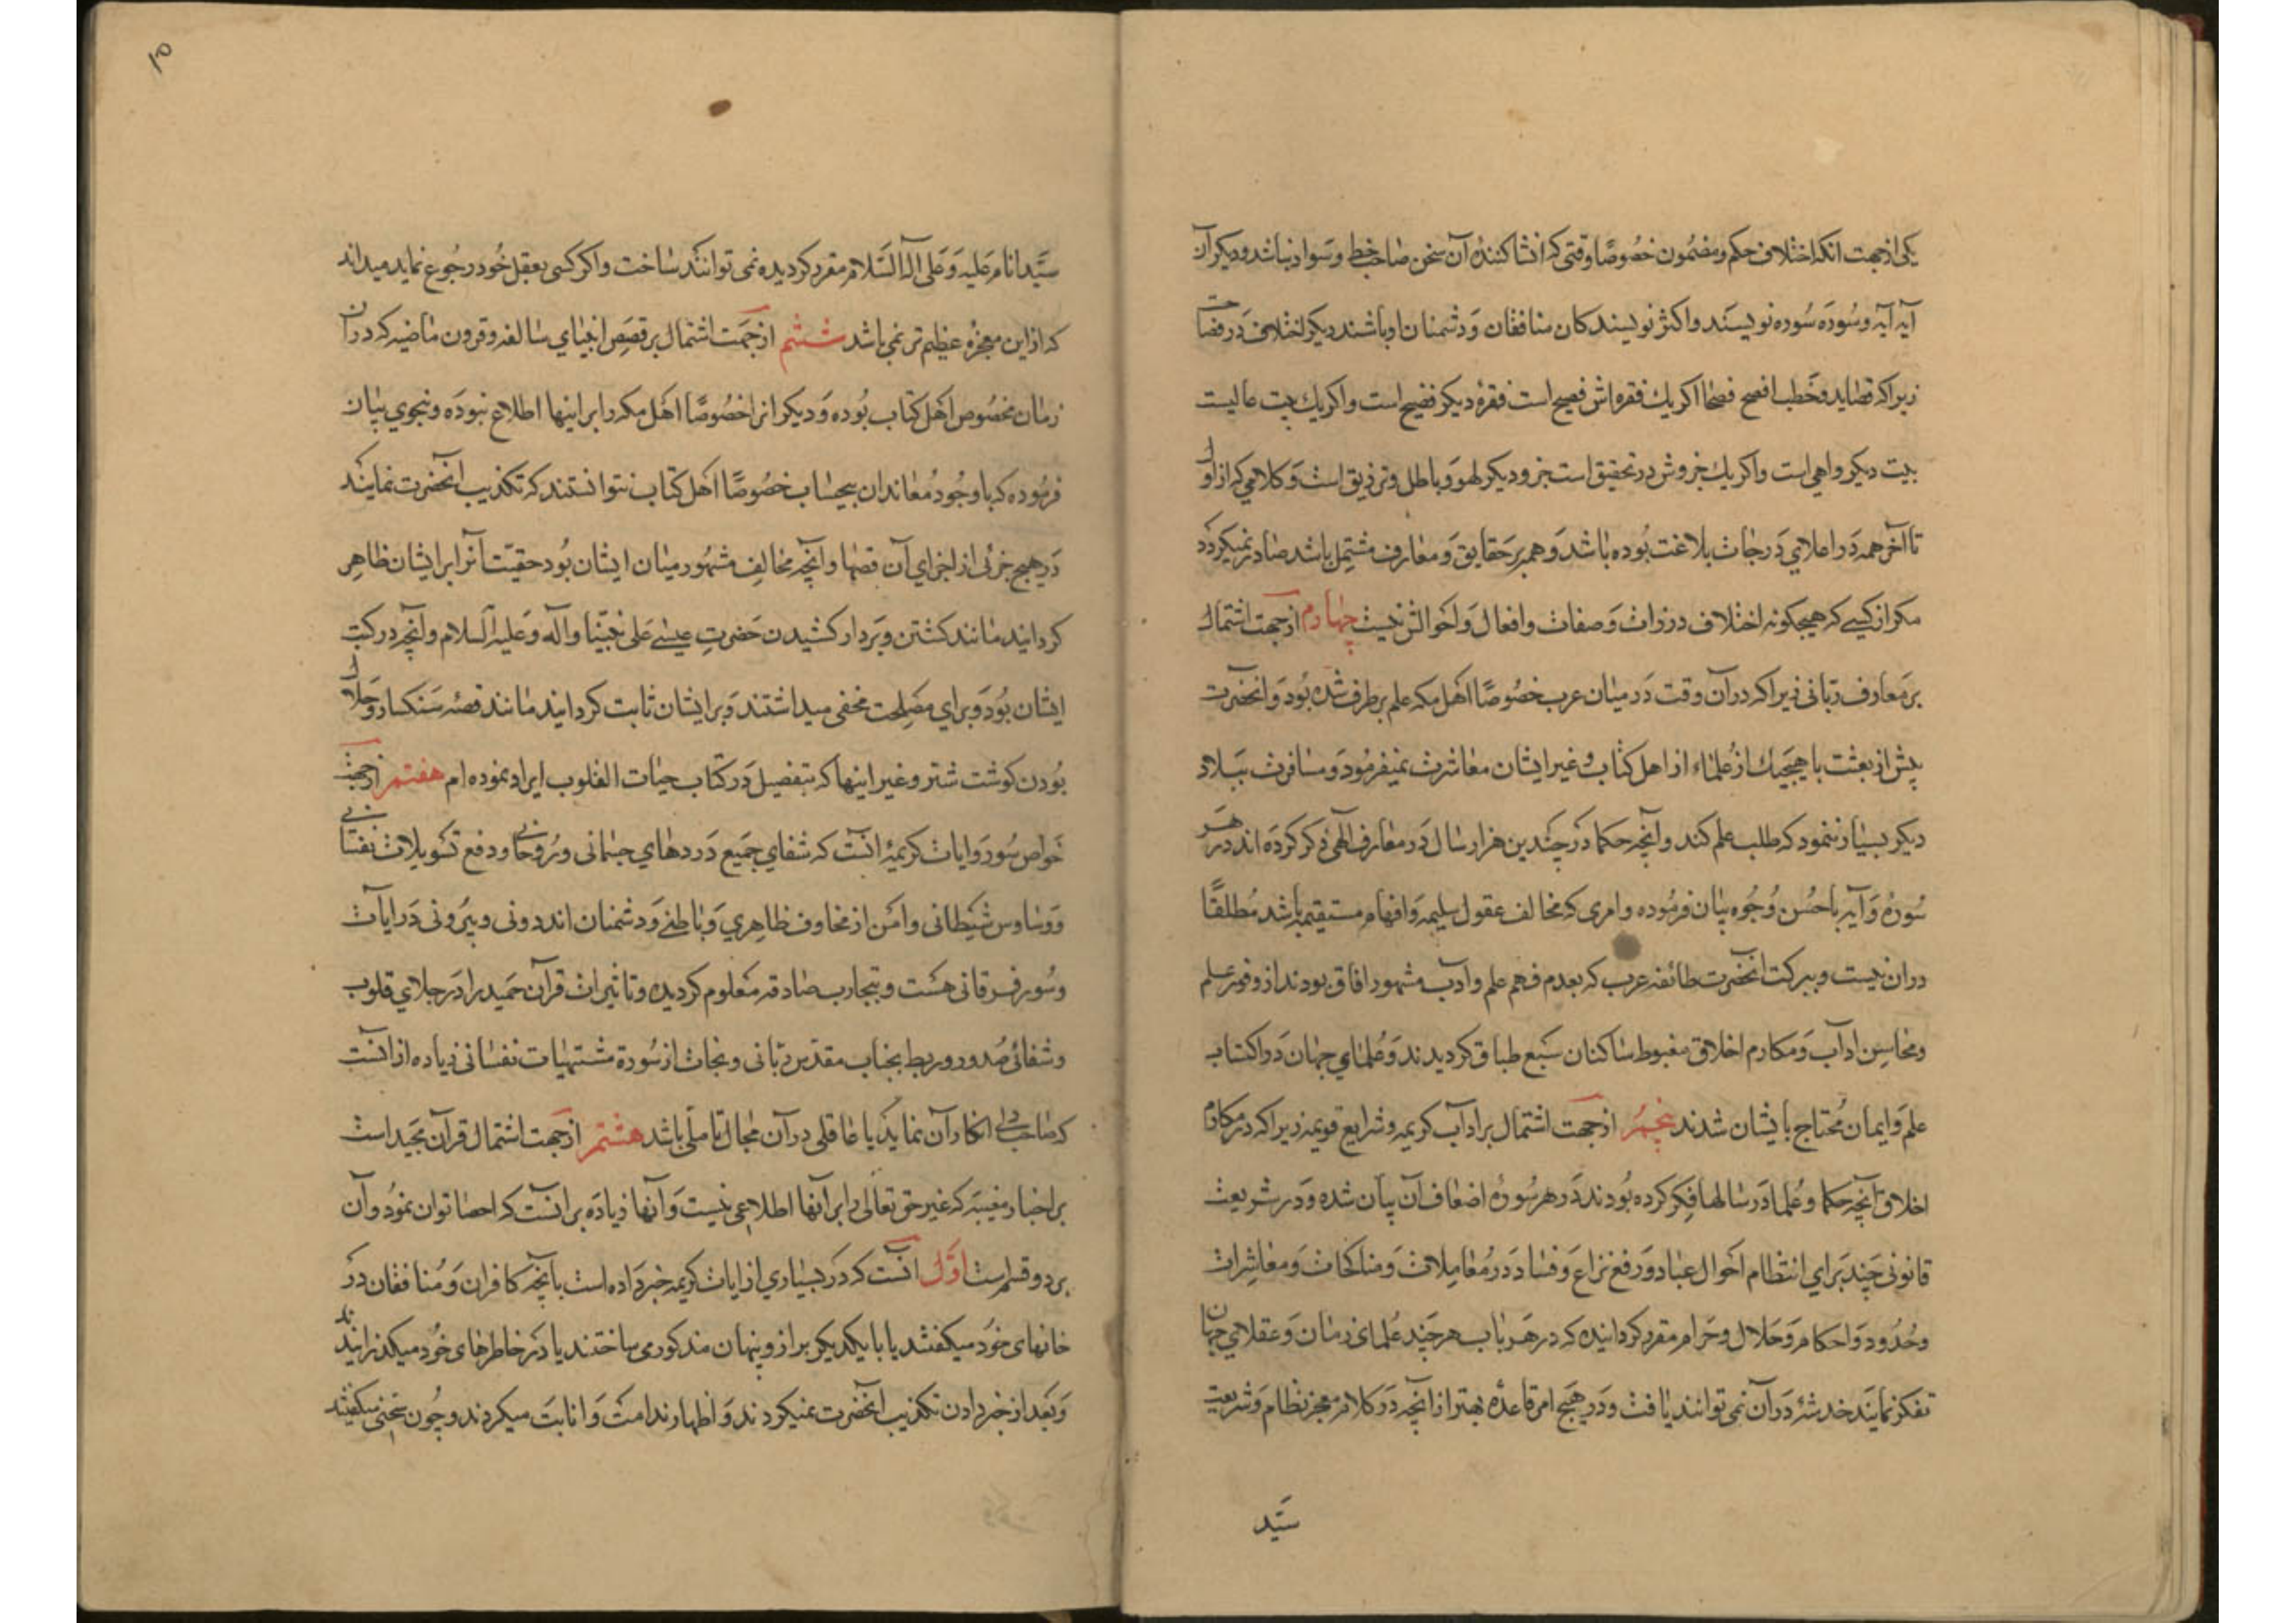 یکی از جهت انکه اختلاف حکم و مضمون خصوصًا وقتی که انشا کنندهٔ آن سخن صاحب خط و سواد نباشد و دیکر آن
آیه آیه و سُورَه سُوره نویسَند و اکثر نویسندکان منافقان وَ دشمنان او باشند دیکر اختلاف دَر فصاحت
زیرا که قصاید و خُطب افصح فصحا اکر یك فقره اش فصیح است فقرهٔ دیکر فضیح است و اکر یك بیت عالیست
بیت دیکر واهی است و اکر یك جزوش در تحقیق است جزو دیکر لهو وَ باطل و تزریق است وَ کلامی که از اوّل
تا آخر همه دَر اعلای دَرجات بلاغت بُوده باشد وَ همه بر حَقایق وَ معارف مشتمِل باشد صادر نمیکردَد
مکر از کیسے که هیچکونه اختلاف در ذات وَ صفات و افعال وَ احَوالش نیست چهارم از جهت اشتمال
بر مَعارف ربّانی زیرا که در آن وقت دَر میان عرب خصُوصًا اهَل مکه علم بر طرف شده بُود وَ انحضرت
پیش از بعثت با هیچیك از عُلماء از اهل کتاب و غیر ایشان معاشرت نمیفرمُود وَ مسافرت ببَلاد
دیکر بسیار ننمود که طلب علم کند و آنچه حکما دَر چَندین هزار سال دَر معارف الٓهی ذکر کردَه اند در هَر
سُورهٔ وَ آیه باحسُن وُجُوه بیان فرمُوده و امری که مخالف عقول سلیمه وَ افهام مستقیمه باشد مُطلقًا
دران نیست و ببرکت انحضرت طائفه عرب که بعدم فهم علم و ادب مشهور افاق بودند از وفور علم
و محاسِن ادآب وَ مکارم اخلاق مغبوط ساکنان سَبع طباق کردیدند وَ عُلمای جهان دَر اکتساب
علم وَ ایمان مُحتاج بایشان شدند پنجم از جهت اشتمال بر ادآب کریمه و شرایع قویمه زیرا که در مکارم
اخلاق آنچه حکما و عُلما دَر سالها فِکر کرده بُودند دَر هر سُورهٔ اضعاف آن بیان شده وَ در شریعت
قانونی چَند بَرای انتظام احَوال عباد وَ رفع نزاع وَ فساد دَر مُعامِلات وَ مناکحات وَ معاشِرات
و حُدُود وَ احکام وَ حَلال و حَرام مقرر کردانیده که در هَر باب هر چَند عُلمای زمان وَ عقلای جهان
تفکر نمایَند خدشهٔ دَر آن نمی توانند یافت و دَر هیچ امر قاعدهٔ بهتر از انچه دَر کلام معجز نظام وَ شریعت
سَیّد
۱۵
سَیّد انام عَلیه وَ عَلی آله السَّلام مقرر کردیده نمی توانند ساخت و اکر کسی بعقل خُود رجُوع نماید میداند
که از این معجزهٔ عظیم تر نمی باشد ششم از جهَت اشتمال بر قصَص انبیای سالفه و قرون ماضیه که در ان
زمان مخصُوص اهَل کتاب بُوده وَ دیکر انرا خصُوصًا اهَل مکه را بر اینها اطلاع نبودَه و بنحوی بیان
فرمُوده که با وجُود مُعاندان بیحساب خصُوصًا اهَل کتاب نتوانستند که تکذیب انحضرت نمایند
دَر هیچ جزئی از اجزای آن قصّها و آنچه مخالِف مشهُور میان ایشان بُود حقیّت آنرا بر ایشان ظاهِر
کردانید مانند کشتن و بَر دار کشیدن حَضرتِ عیسٰے عَلی نبیّنا و آله وَ علیه السّلام و آنچه در کتب
ایشان بُود وَ برای مصَلِحت مخفی میداشتند وَ بر ایشان ثابت کردانید مانند قصهٔ سَنکسار وَ حَلال
بُودن کوشت شتر و غیر اینها که بتفصیل دَر کتاب حیات القلوب ایراد نموده ام هفتم از جهت
خواص سُوَر وَ ایات کریمهٔ انست که شفای جَمیع دَردهای جسمانی و رُوحانی و دفع تسویلات نفسانی
وَ وَساوس شیَطانی و امَن از مخاوف ظاهِری وَ باطنے وَ دشمنان اندرونی و بیَرونی دَر ایات
وَ سُور فرقانی هسَت و بتجارب صادقه مَعلوم کردیده و تاثیرات قرآن حَمید را دَر جلای قلوب
و شفائ صُدور و ربط بجناب مقدّس ربّانی و نجات از سُورة مشتهیات نفسانی زیاده از انست
که صاحب دلی انکار آن نماید یا عاقلی در آن مجال تأملی باشد هشتم از جهت اشتمال قرآن مجَید است
بر اخبار مغیّبه که غیر حق تعالٰی را بر آنها اطلاعی نیست وَ آنها زیادَه بر انست که احصا توان نمُود و آن
بر دو قسم است اوّل انست که دَر بسیاری از ایات کریمه خبر دَاده است بآنچه کافران وَ مُنافقان دَر
خانهای خوَد میکفتند یا با یکدیکر براز و پنهان مذکور می ساختند یا دَر خاطرهای خُود میکذرانیدند
وَ بَعد از خبر دادن تکذیب انحضرت نمیکردند وَ اظهار ندامت وَ انابَت میکردند و چُون سخنی میکفتند